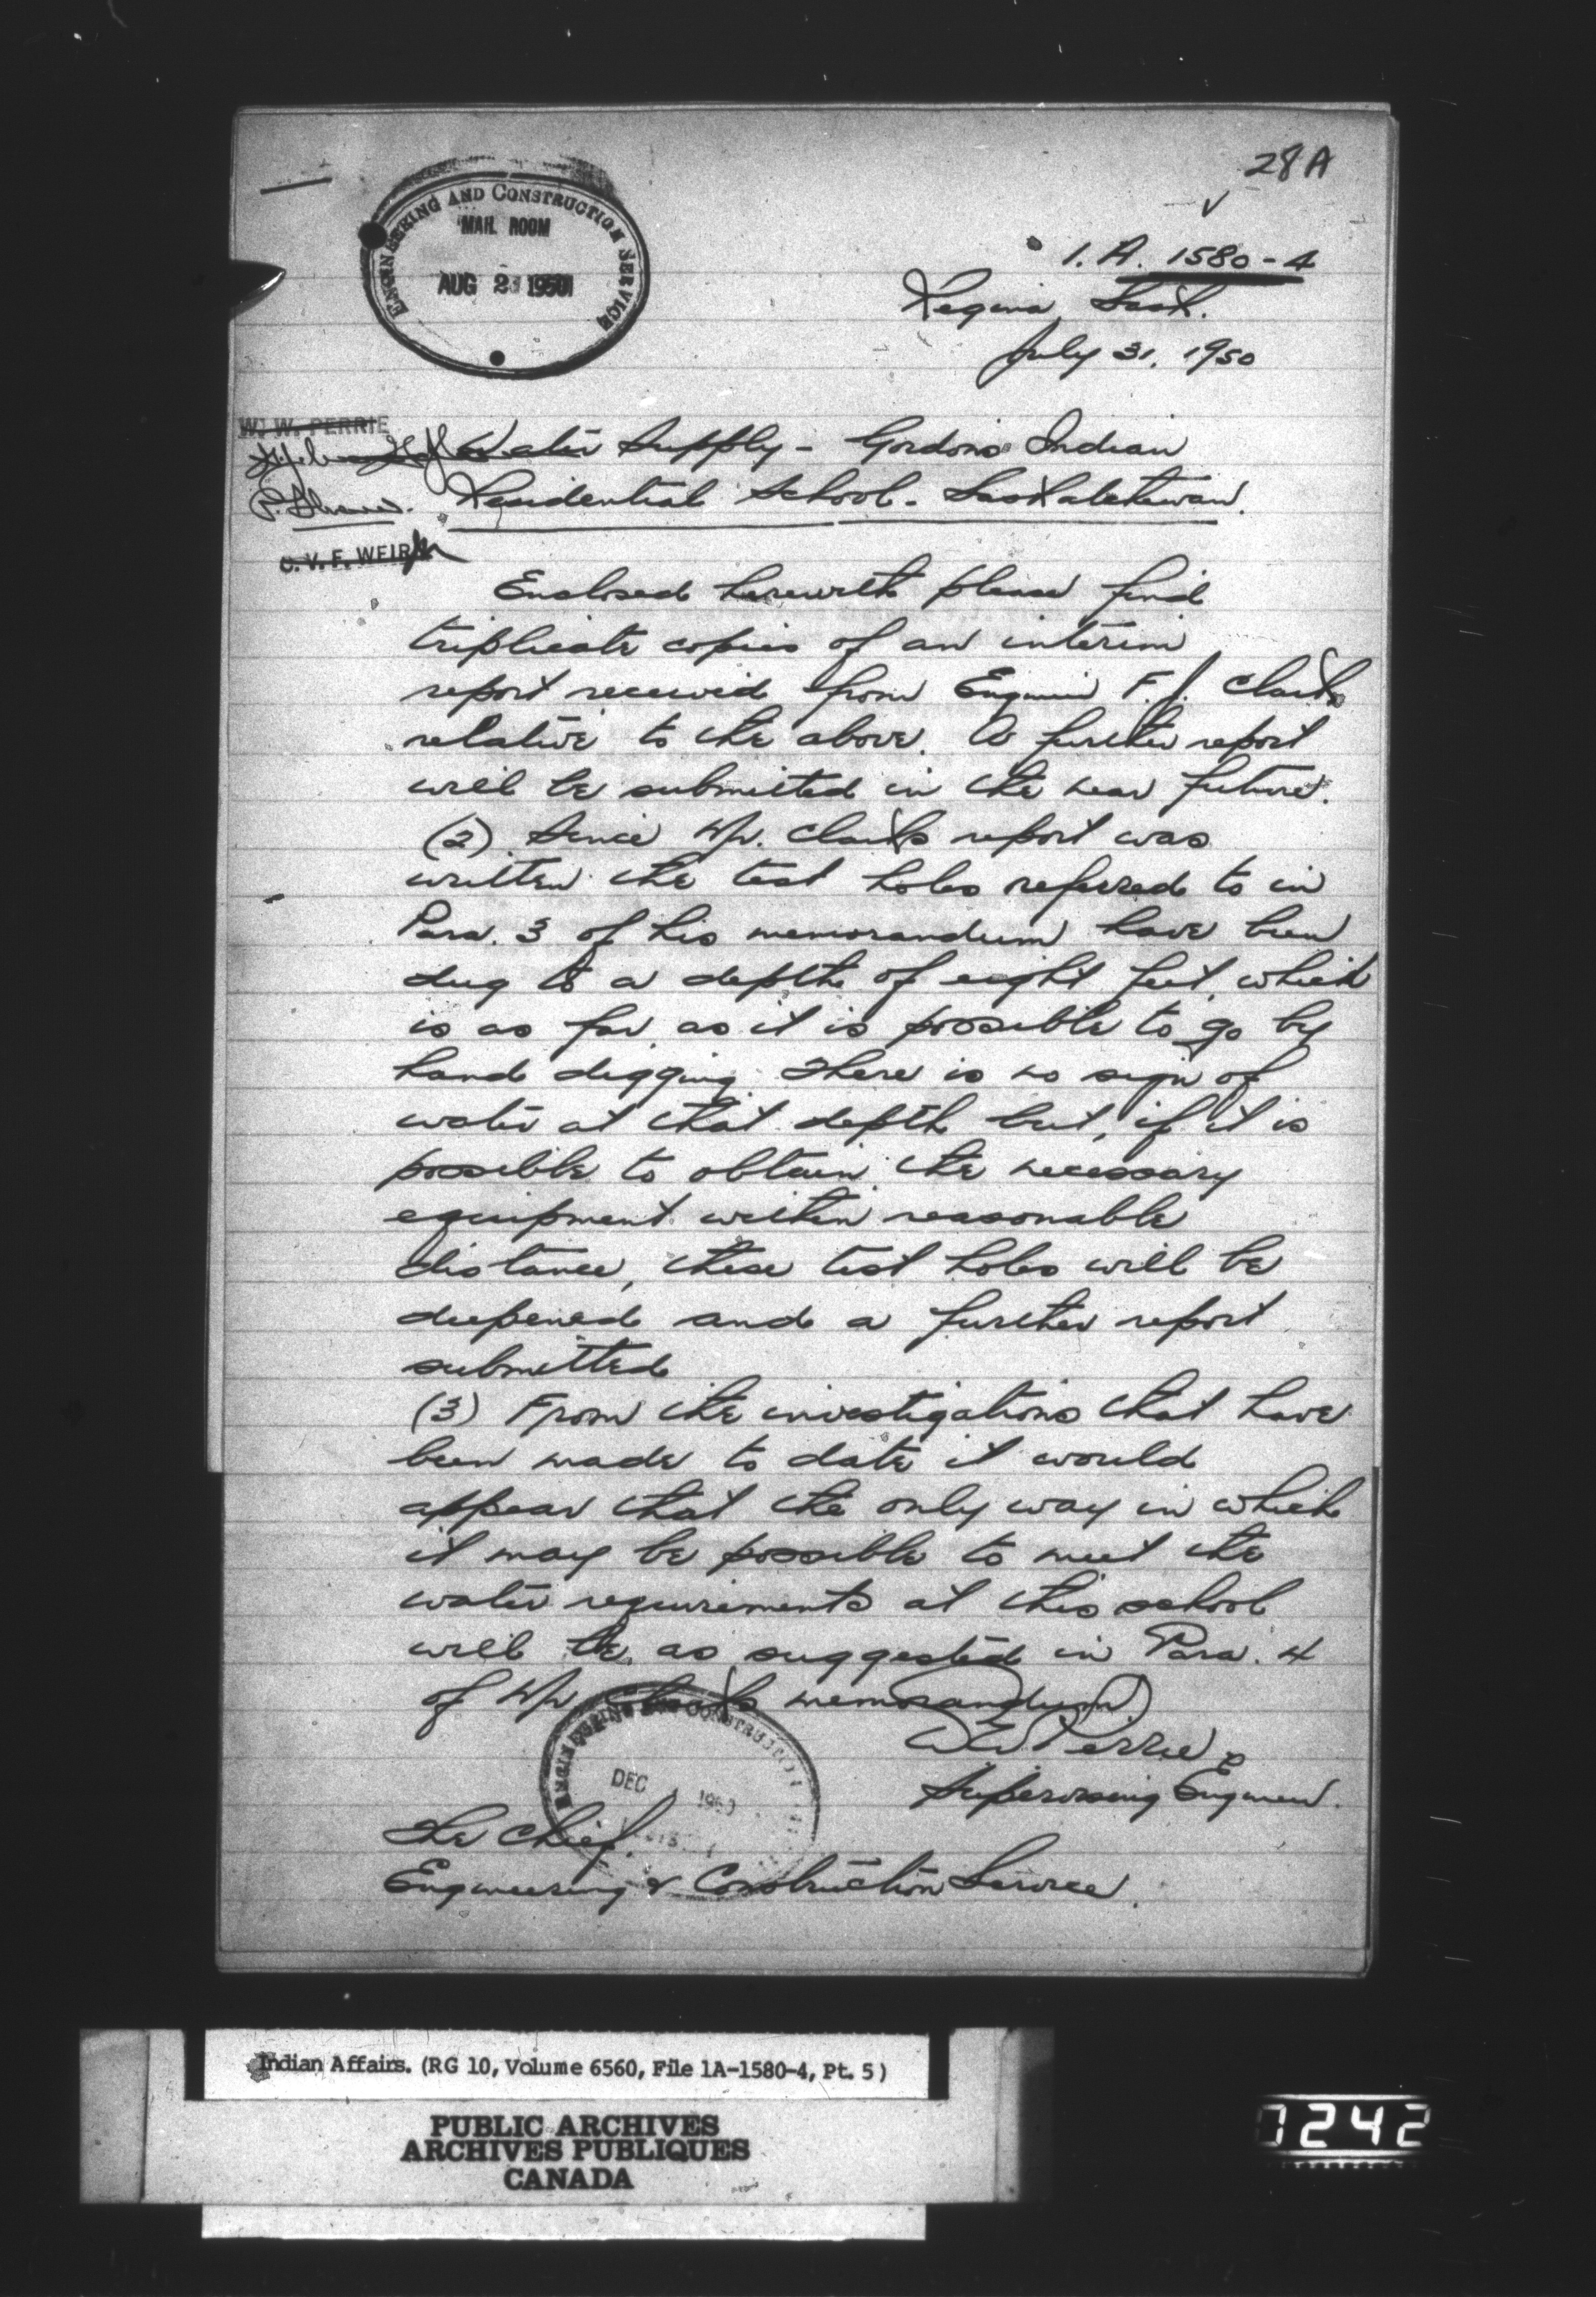 28A
ENGINEERING AND CONSTRUCTION SERVICE
MAIL ROOM
AUG 2 1950
I.A. 1580-4
Regina, Sask.
July 31, 1950
W. W. PERRIE
Water Supply - Gordons Indian
Residential School - Saskatchewan.
C. V. F. WEIR
Enclosed herewith please find
triplicate copies of an interim
report received from Engineer F. J. Clark
relative to the above. A further report
will be submitted in the near future.
(2) Since Mr. Clark's report was
written the test holes referred to in
Para. 3 of his memorandum have been
dug to a depth of eight feet, which
is as far as it is possible to go by
hand digging. There is no sign of
water at that depth but, if it is
possible to obtain the necessary
equipment within reasonable
distance, these test holes will be
deepened and a further report
submitted
(3) From the investigations that have
been made to date it would
appear that the only way in which
it may be possible to meet the
water requirements at this school
will be as suggested in Para. 4
of Mr. Clark's memorandum.
W W Perrie
Supervising Engineer.
ENGINEERING AND CONSTRUCTION
DEC 1950
The Chief.
Engineering & Construction Service.
Indian Affairs. (RG 10, Volume 6560, File 1A-1580-4, Pt. 5)
PUBLIC ARCHIVES
ARCHIVES PUBLIQUES
CANADA
0242